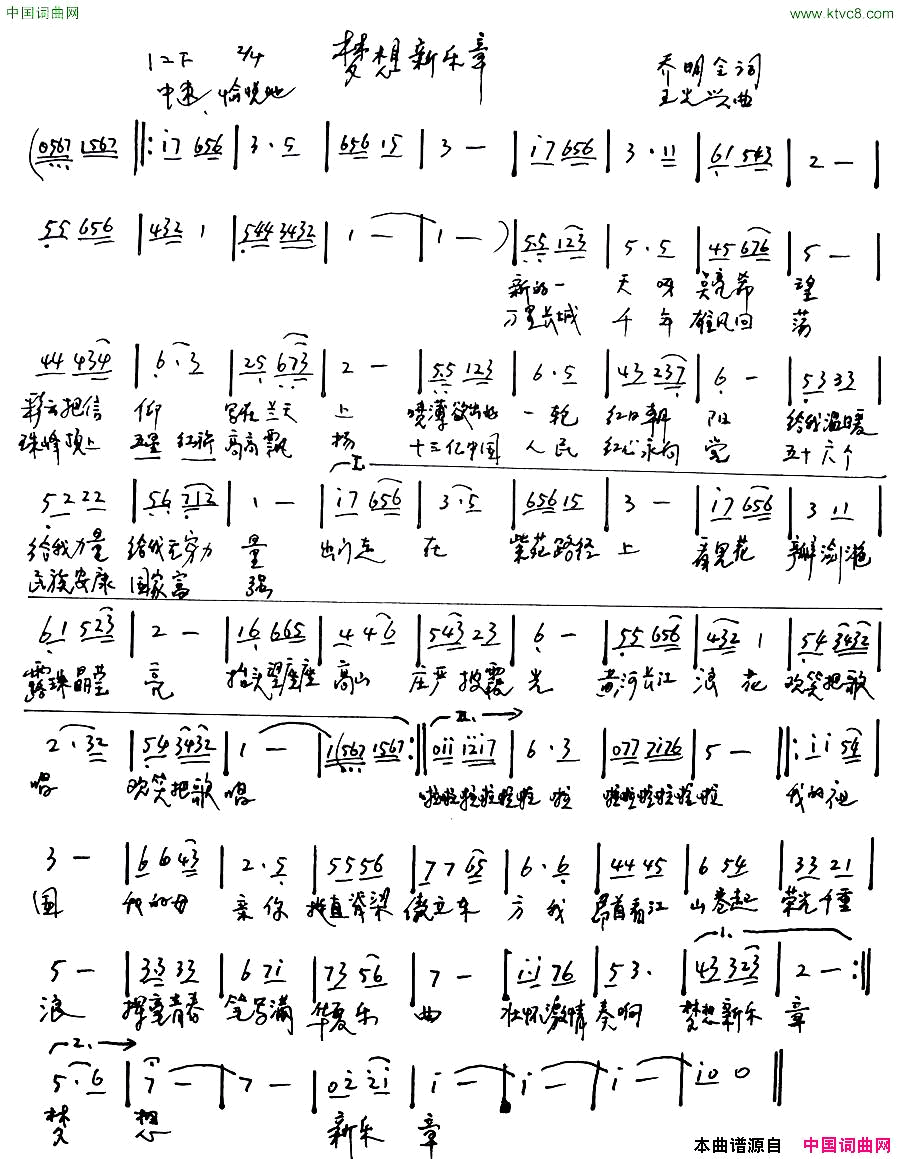 中国词曲网
www.ktvc8.com
梦想新乐章
1=F 2/4
中速
乔明全词
王光兴曲
(0567 1567 ‖: i7 656 | 3·5 | 656 15 | 3 — | i7 656 | 3·11 | 61 543 | 2 — |
55 656 | 432 1 | 544 3432 | 1 — | 1 — ) | 55 123 | 5·5 | 45 676 | 5 — |
新的一 天 呀 希 望
万里长城 千 年 雄风回 荡
44 434 | 6·3 | 25 673 | 2 — | 55 123 | 6·5 | 43 237 | 6 — | 53 33 |
彩云把信 仰 写在兰天 上 喷薄欲出的 一 轮 红日朝 阳 给我温暖
珠峰顶上 五星 红旗 高高飘 扬 十三亿中国 人 民 红心永向 党 五十六个
I.
52 22 | 56 712 | 1 — | i7 656 | 3·5 | 656 15 | 3 — | i7 656 | 3 11 |
给我力量 给我无穷力 量 出门走 在 紫苑路径 上 看见花 瓣
民族安康 国家富 强
61 523 | 2 — | 16 665 | 4 46 | 543 23 | 6 — | 55 656 | 432 1 | 54 3432 |
露珠晶莹 亮 抬头望座座 高山 庄严披霞 光 黄河长江 浪 花 欢笑把歌
II.
2·32 | 54 3432 | 1 — | 1(567 1567 :‖ 0ii i2i7 | 6·3 | 077 7i76 | 5 — ‖: ii 54 |
唱 欢笑把歌 唱 啦啦啦啦啦啦 啦 啦啦啦啦啦 啦 我的祖
3 — | 66 43 | 2·5 | 55 56 | 77 65 | 6·6 | 44 45 | 6 54 | 33 21 |
国 我的母 亲 你 挺直脊梁 傲立东 方 我 昂首看江 山 卷起 荣光千重
1.
5 — | 33 33 | 6 7i | 73 56 | 7 — | ii 76 | 5 3· | 43 323 | 2 — :‖
浪 挥毫青春 笔写满 华夏乐 曲 壮怀激情 奏响 梦想新乐 章
2.
5·6 | 7 — | 7 — | 02 2i | i — | i — | i — | i0 0 ‖
梦 想 新乐 章
本曲谱源自 中国词曲网